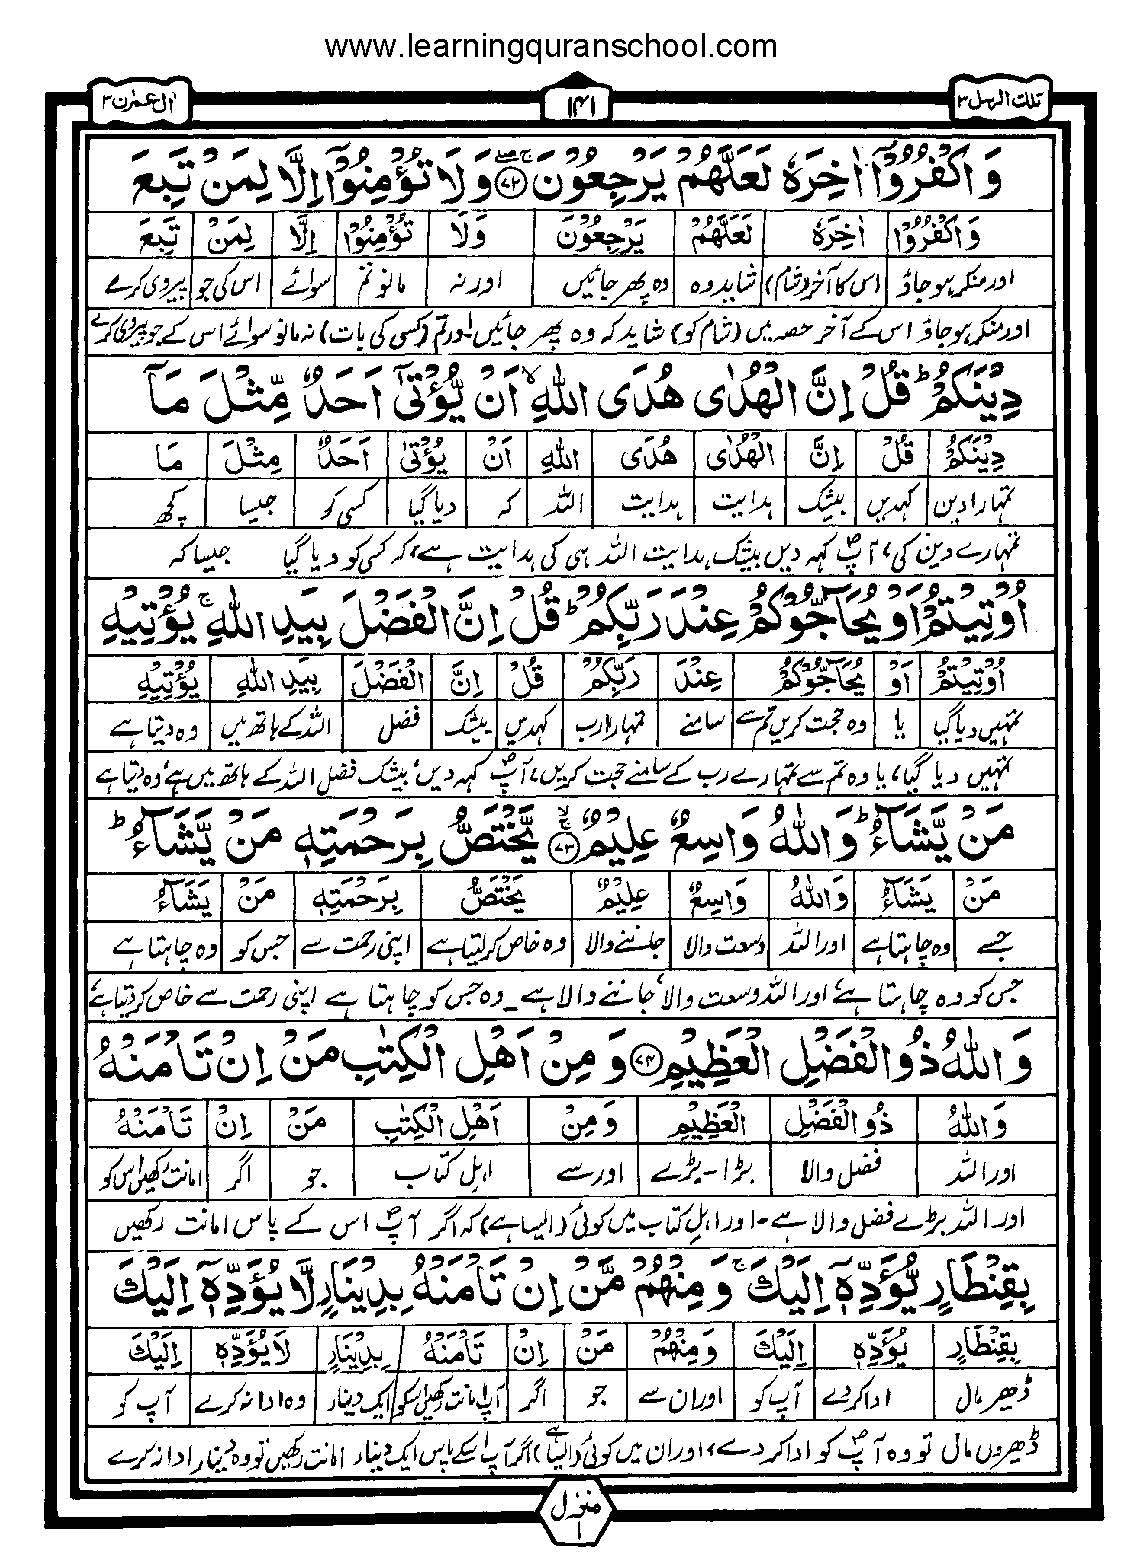 www.learningquranschool.com
تلك الرسل ٣ ١٤١ اٰل عمرٰن ٣
وَاكْفُرُوْٓا اٰخِرَهٗ لَعَلَّهُمْ يَرْجِعُوْنَ ﴿٧٢﴾ وَلَا تُؤْمِنُوْٓا اِلَّا لِمَنْ تَبِعَ
وَاكْفُرُوْٓا اٰخِرَهٗ لَعَلَّهُمْ يَرْجِعُوْنَ وَلَا تُؤْمِنُوْٓا اِلَّا لِمَنْ تَبِعَ
اور منکر ہو جاؤ اس کا آخر (شام) شاید وہ وہ پھر جائیں اور نہ مانو تم سوائے اس کی جو پیروی کرے
اور منکر ہو جاؤ اس کے آخر حصہ میں (شام کو) شاید کہ وہ پھر جائیں۔ اور تم (کسی کی بات) نہ مانو سوائے اس کے جو پیروی کرے
دِيْنَكُمْ ؕ قُلْ اِنَّ الْهُدٰى هُدَى اللّٰهِ ۙ اَنْ يُّؤْتٰٓى اَحَدٌ مِّثْلَ مَآ
دِيْنَكُمْ قُلْ اِنَّ الْهُدٰى هُدَى اللّٰهِ اَنْ يُؤْتٰى اَحَدٌ مِثْلَ مَا
تمہارا دین کہدیں بیشک ہدایت ہدایت اللہ کہ دیا گیا کسی کو جیسا کچھ
تمہارے دین کی، آپؐ کہہ دیں بیشک ہدایت اللہ ہی کی ہدایت ہے، کہ کسی کو دیا گیا جیسا کہ
اُوْتِيْتُمْ اَوْ يُحَآجُّوْكُمْ عِنْدَ رَبِّكُمْ ؕ قُلْ اِنَّ الْفَضْلَ بِيَدِ اللّٰهِ ۚ يُؤْتِيْهِ
اُوْتِيْتُمْ اَوْ يُحَآجُّوْكُمْ عِنْدَ رَبِّكُمْ قُلْ اِنَّ الْفَضْلَ بِيَدِ اللّٰهِ يُؤْتِيْهِ
تمہیں دیا گیا یا وہ حجت کریں تم سے سامنے تمہارا رب کہدیں بیشک فضل اللہ کے ہاتھ میں وہ دیتا ہے
تمہیں دیا گیا، یا وہ تم سے تمہارے رب کے سامنے حجت کریں، آپؐ کہہ دیں، بیشک فضل اللہ کے ہاتھ میں ہے، وہ دیتا ہے
مَنْ يَّشَآءُ ؕ وَاللّٰهُ وَاسِعٌ عَلِيْمٌ ﴿٧٣﴾ يَّخْتَصُّ بِرَحْمَتِهٖ مَنْ يَّشَآءُ ؕ
مَنْ يَشَآءُ وَاللّٰهُ وَاسِعٌ عَلِيْمٌ يَخْتَصُّ بِرَحْمَتِهٖ مَنْ يَشَآءُ
جسے وہ چاہتا ہے اور اللہ وسعت والا جاننے والا وہ خاص کر لیتا ہے اپنی رحمت سے جس کو وہ چاہتا ہے
جس کو وہ چاہتا ہے، اور اللہ وسعت والا، جاننے والا ہے۔ وہ جس کو چاہتا ہے اپنی رحمت سے خاص کر لیتا ہے،
وَاللّٰهُ ذُو الْفَضْلِ الْعَظِيْمِ ﴿٧٤﴾ وَمِنْ اَهْلِ الْكِتٰبِ مَنْ اِنْ تَاْمَنْهُ
وَاللّٰهُ ذُو الْفَضْلِ الْعَظِيْمِ وَمِنْ اَهْلِ الْكِتٰبِ مَنْ اِنْ تَاْمَنْهُ
اور اللہ فضل والا بڑا - بڑے اور سے اہل کتاب جو اگر امانت رکھیں اس کو
اور اللہ بڑے فضل والا ہے۔ اور اہلِ کتاب میں کوئی (ایسا ہے) کہ اگر آپؐ اس کے پاس امانت رکھیں
بِقِنْطَارٍ يُّؤَدِّهٖٓ اِلَيْكَ ۚ وَمِنْهُمْ مَّنْ اِنْ تَاْمَنْهُ بِدِيْنَارٍ لَّا يُؤَدِّهٖٓ اِلَيْكَ
بِقِنْطَارٍ يُؤَدِّهٖ اِلَيْكَ وَمِنْهُمْ مَنْ اِنْ تَاْمَنْهُ بِدِيْنَارٍ لَا يُؤَدِّهٖٓ اِلَيْكَ
ڈھیر مال ادا کر دے آپ کو اور ان سے جو اگر آپ امانت رکھیں اس کو ایک دینار وہ ادا نہ کرے آپ کو
ڈھیروں مال تو وہ آپؐ کو ادا کر دے، اور ان میں کوئی (ایسا ہے) اگر آپ اسکے پاس ایک دینار امانت رکھیں تو وہ دینار ادا نہ کرے
منزل
١